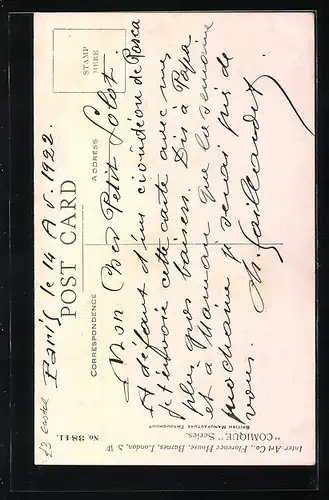 Paris le 14 A v. 1922.
POST CARD
CORRESPONDENCE
ADDRESS
STAMP
HERE
Mon Cher Petit Lolot
A défaut d'un cornichon de Rosca
je t'envoie cette carte avec mes
plus gros baisers. Dis à Papa
et à Maman que la semaine
prochaine je serai près de
vous.
M. Gaillaudet
Inter-Art Co., Florence House, Barnes, London, S.W.
"COMIQUE" Series.
BRITISH MANUFACTURE THROUGHOUT
No. 3841.